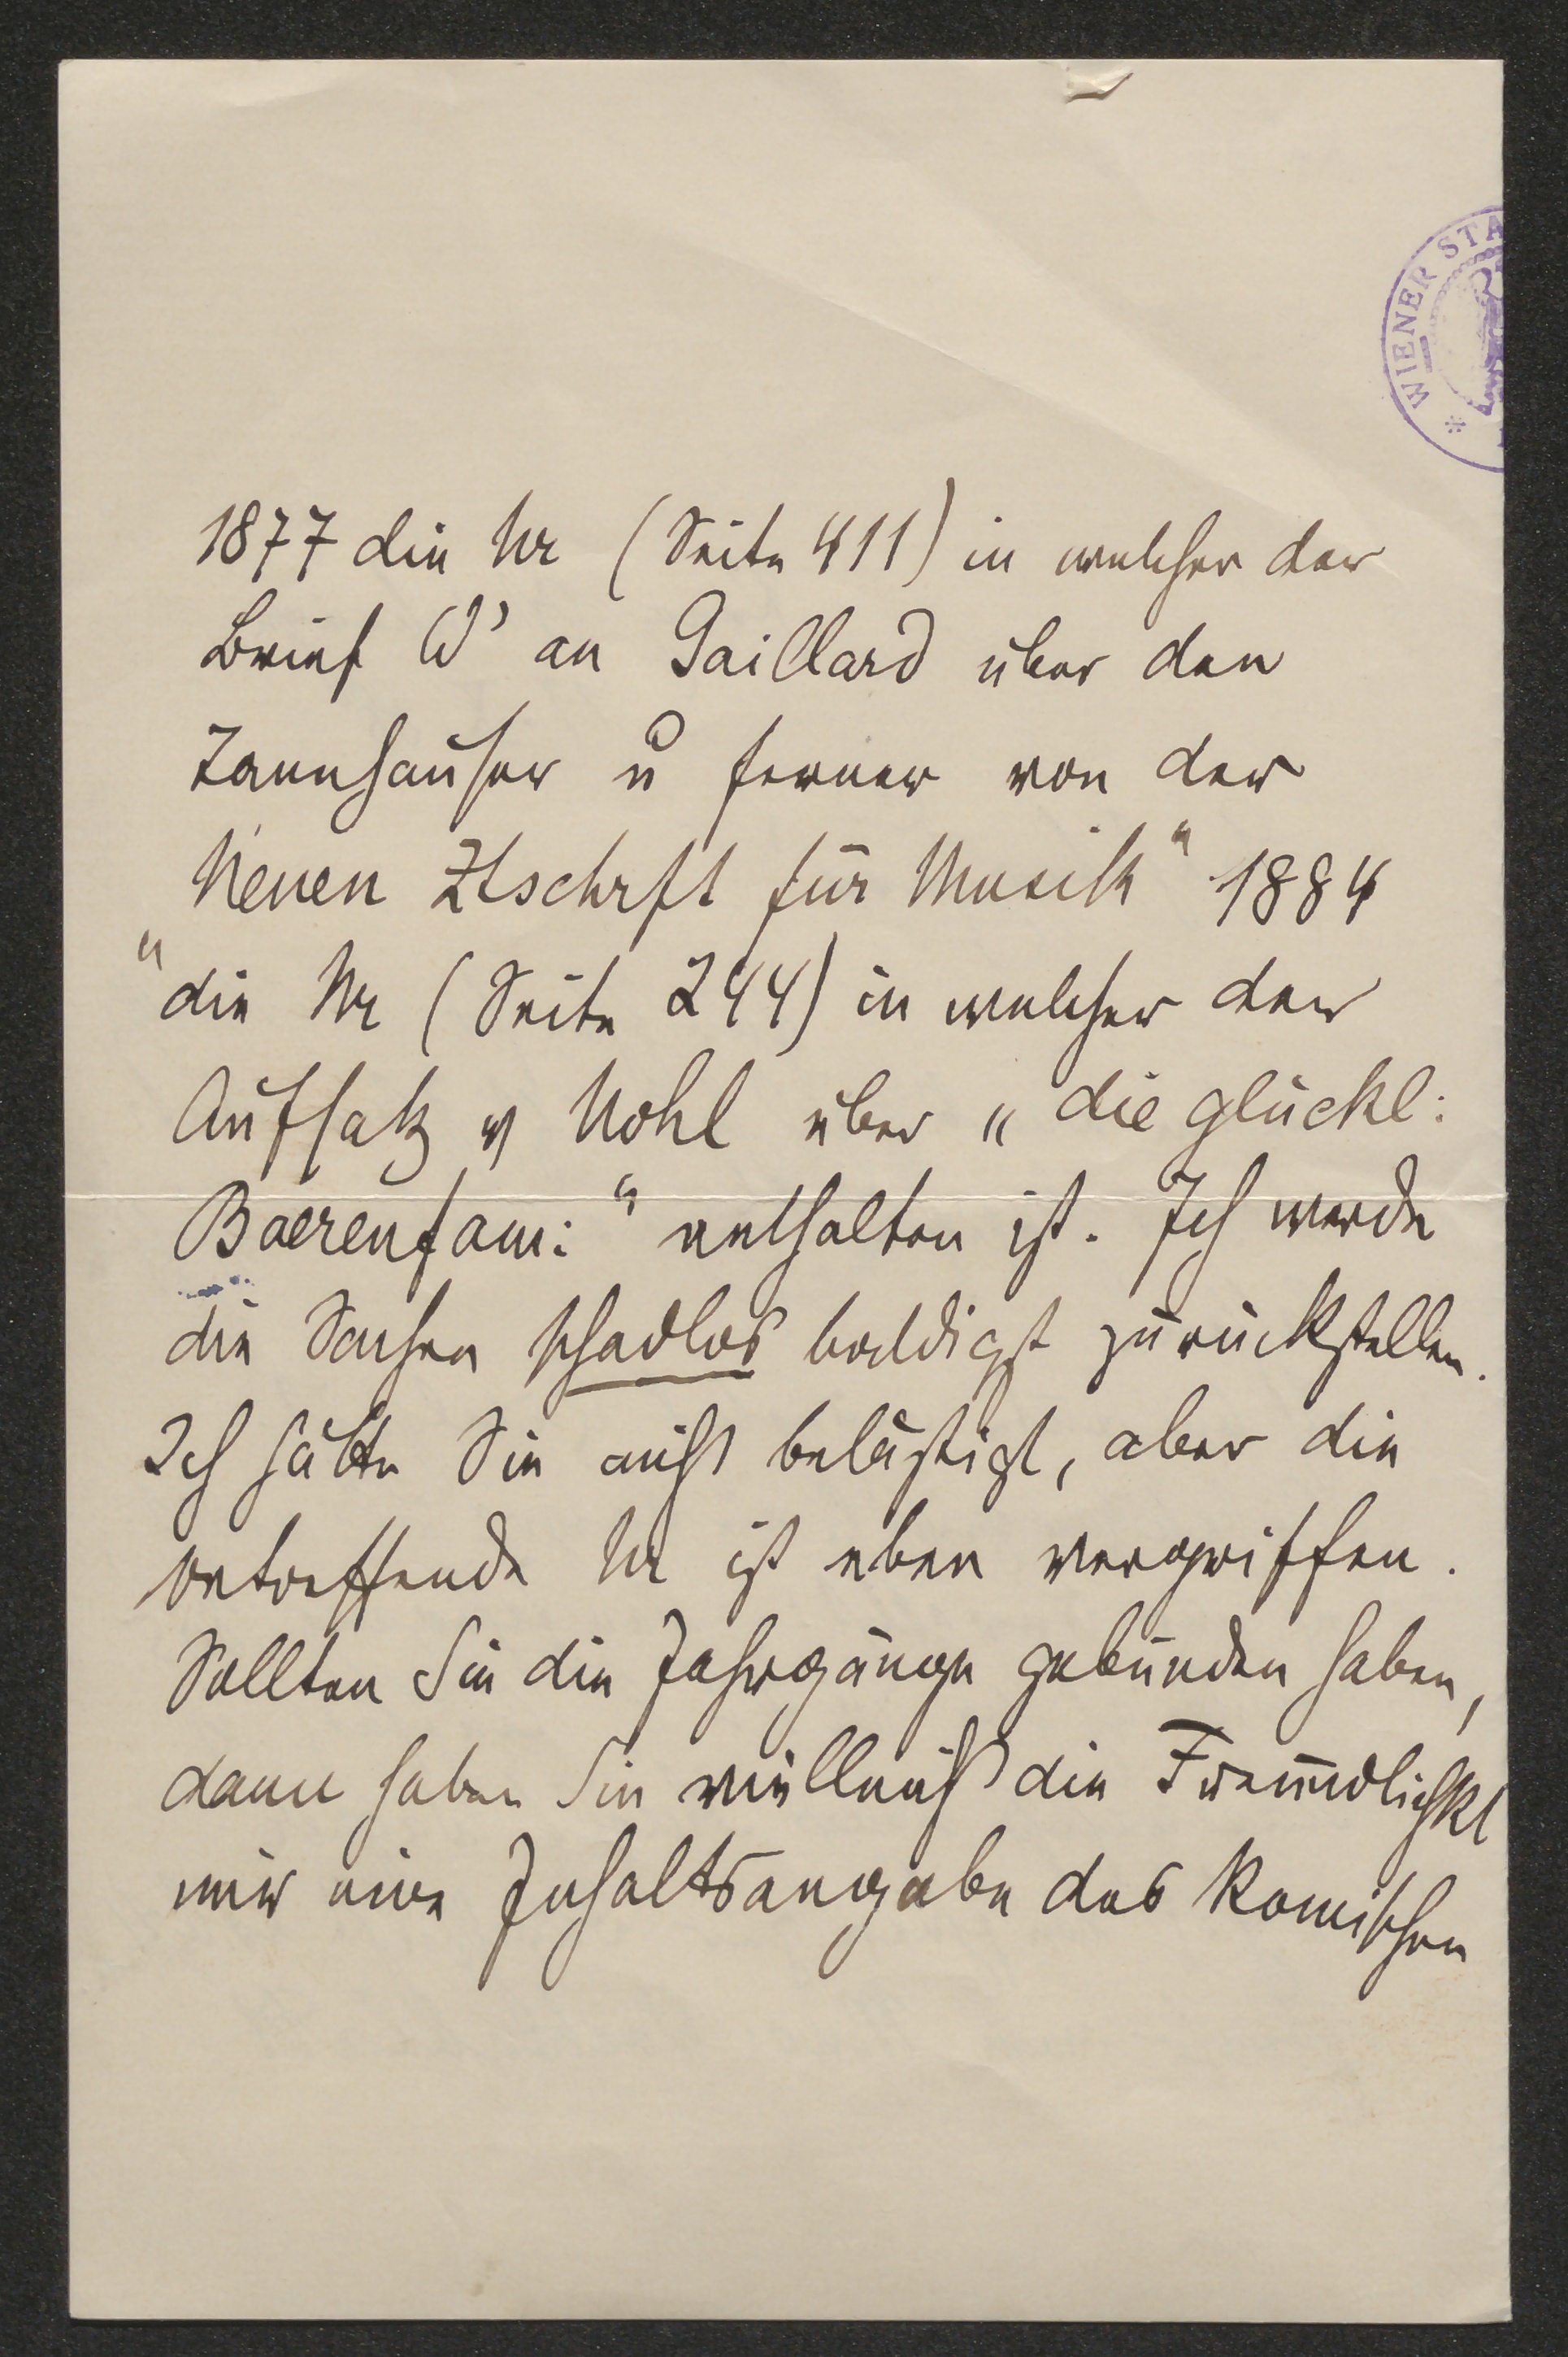 WIENER STA
*
1877 die Nr (Seite 411) in welcher der
Brief W' an Gaillard über den
Tannhäuser u ferner von der
Neuen Ztschrft für Musik" 1884
"die Nr (Seite 244) in welcher der
Aufsatz v Nohl über „die glückl:
Baerenfam:" enthalten ist. Ich werde
die Sachen schadlos baldigst zurückstellen.
Ich hätte Sie nicht belästigt, aber die
betreffende Nr ist eben vergriffen.
Sollten Sie die Jahrgänge gebunden haben,
dann haben Sie vielleicht die Freundlichkt
mir eine Inhaltsangabe des komischen